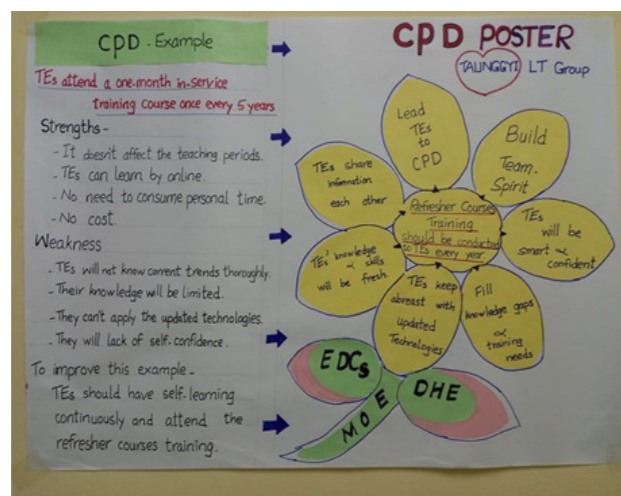 CPD - Example
TEs attend a one-month in-service
training course once every 5 years
Strengths -
- It doesn't affect the teaching periods.
- TEs can learn by online.
- No need to consume personal time.
- No cost.
Weakness
- TEs will not know current trends thoroughly.
- Their knowledge will be limited.
- They can't apply the updated technologies.
- They will lack of self-confidence.
To improve this example -
TEs should have self-learning
continuously and attend the
refresher courses training.
CPD POSTER
TAUNGGYI LT Group
Lead
TEs
to
CPD
Build
Team
Spirit
TEs share
information
each other
TEs
will be
smart &
confident
Refresher Courses
Training
should be conducted
to TEs every year.
TEs' knowledge
& skills
will be fresh.
TEs keep
abreast with
updated
Technologies
Fill
knowledge gaps
&
training
needs
EDCs
DHE
MOE